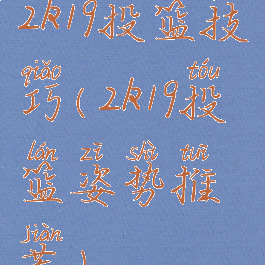 2k19投篮技
qiǎo tóu
巧(2k19投
lán zī shì tuī
篮姿势推
jiàn
荐)